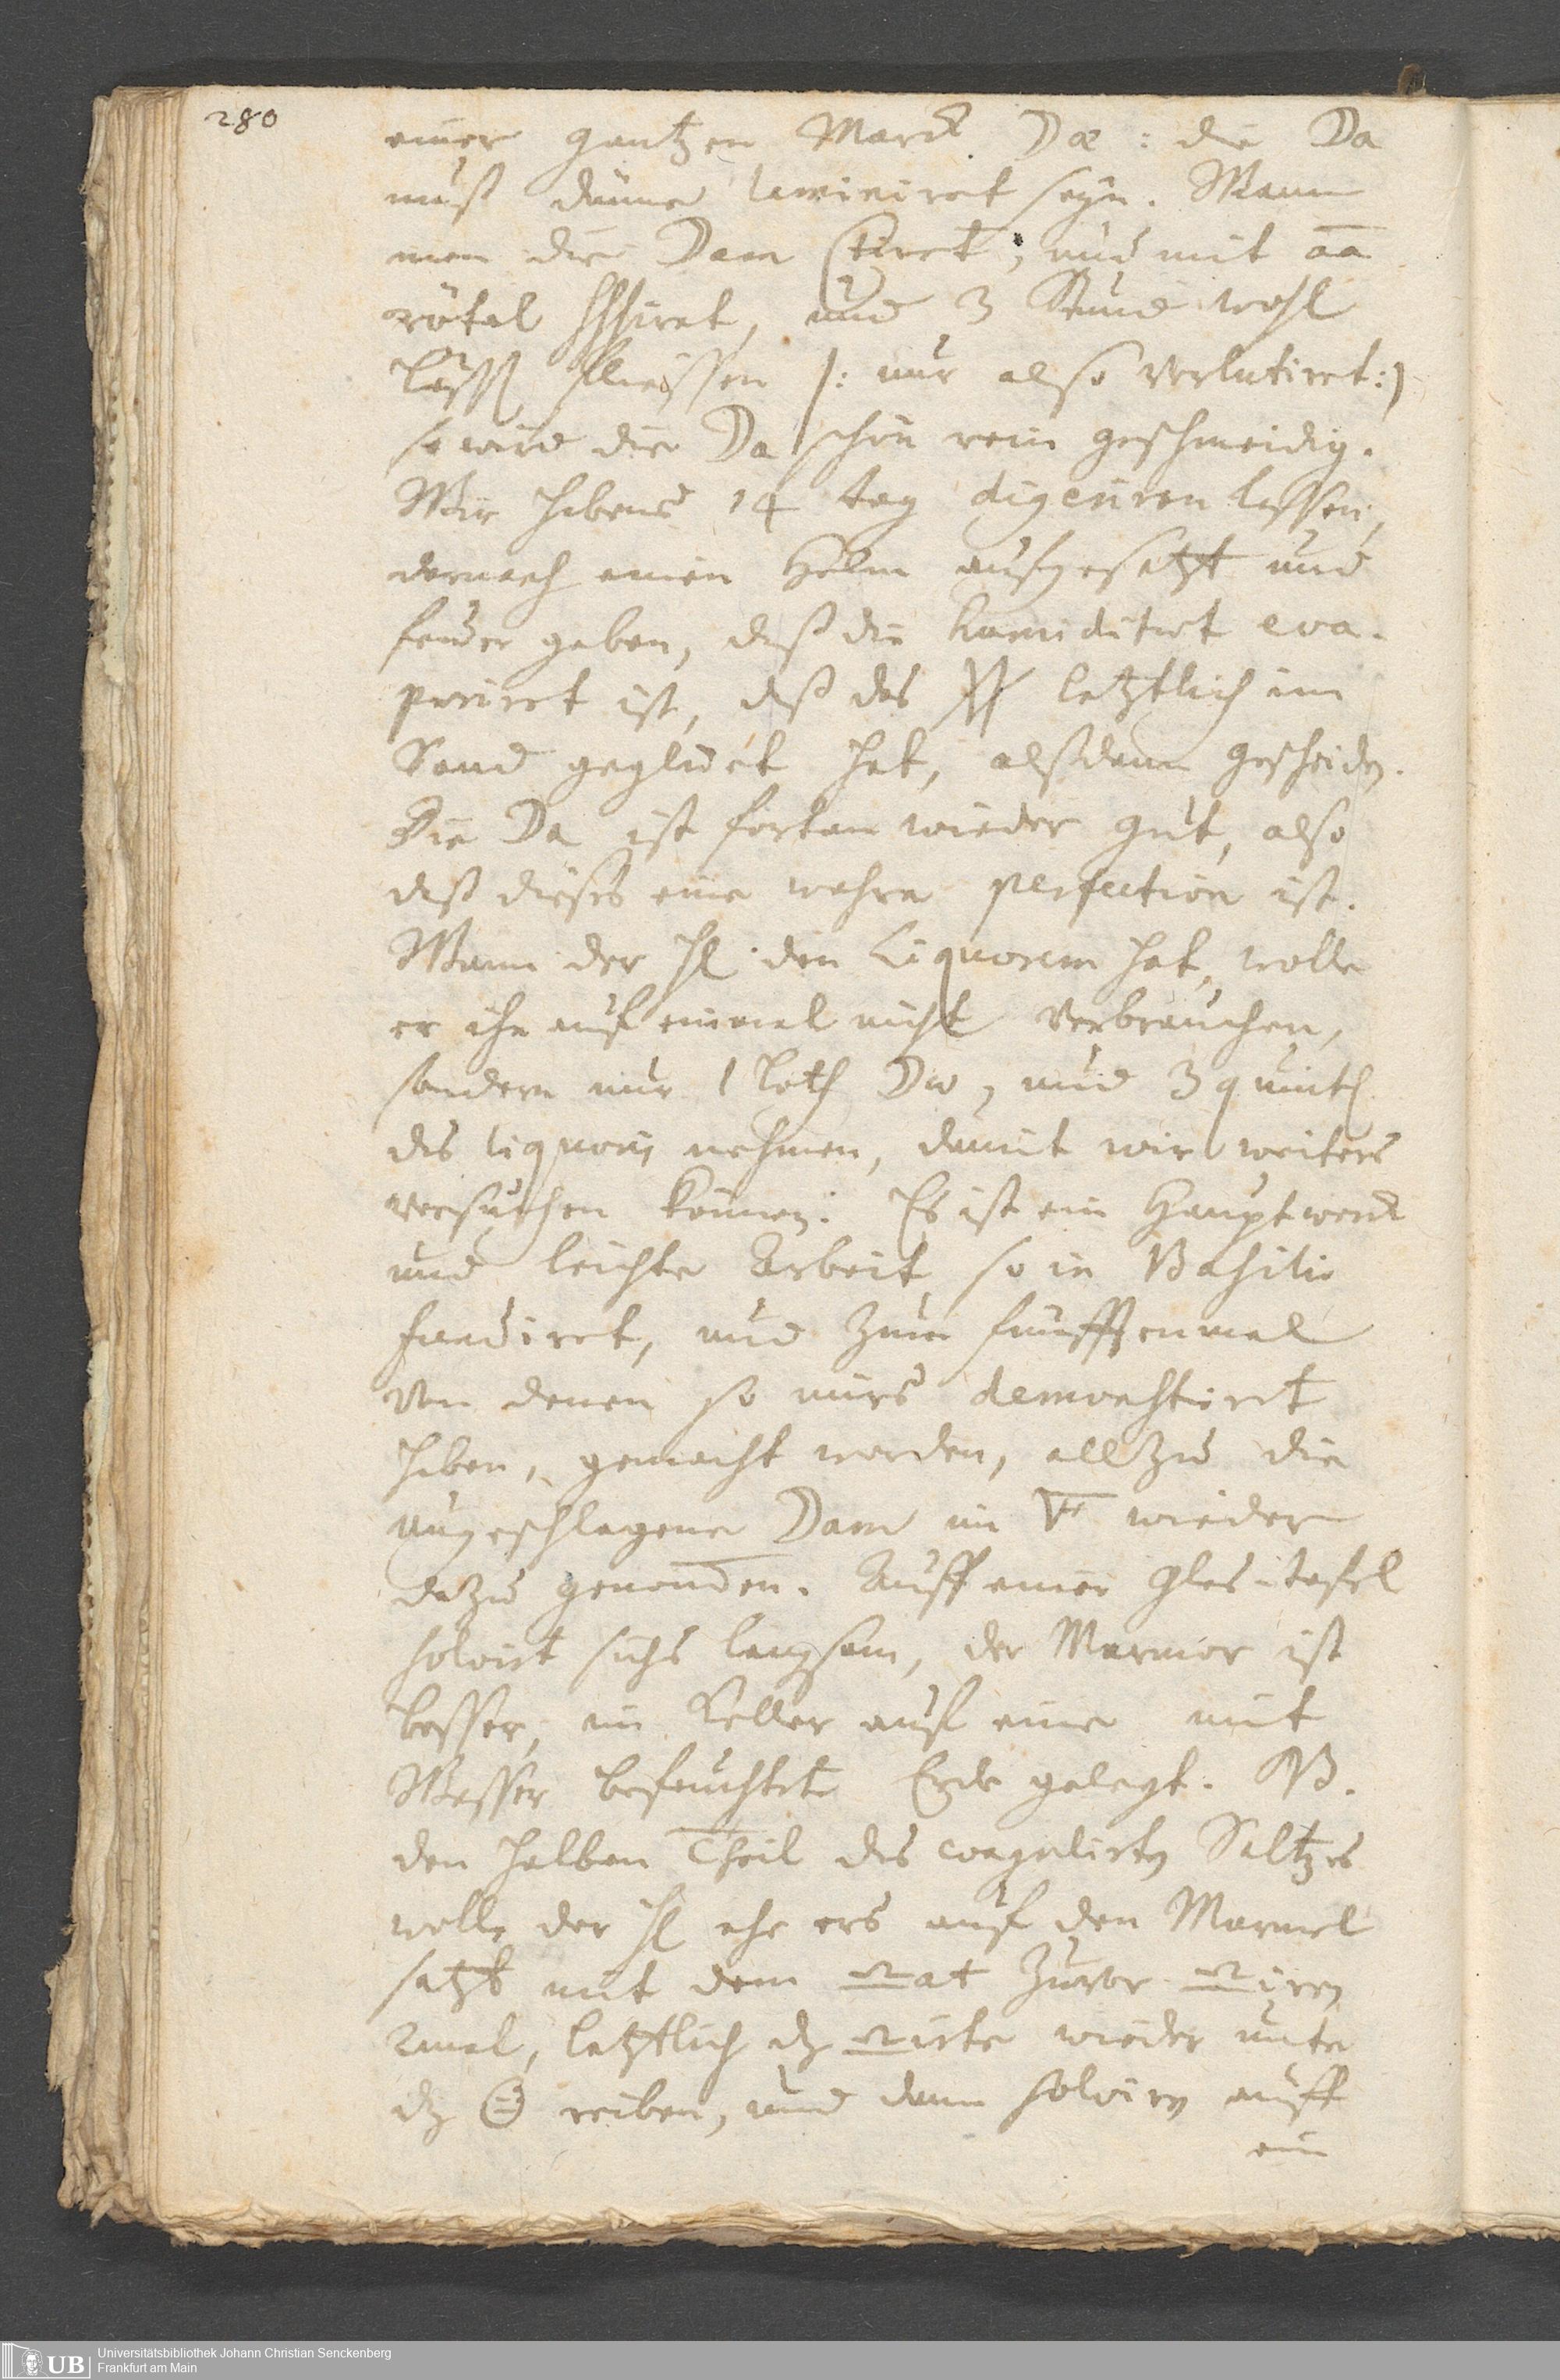 280
einer gantzen Marck Dae: die Da
muß dünne laminiret seyn. Wann
man die Dam und mit aa
rötel und 3 Stund wohl
lassₑ fliessen /: nur also verlutiret:/
so wird die Da schön rein geschmeidig.
Wir habens 14 tag digeriren lassen,
darnach einen Helm aufgesetzt und
feuer geben, daß die humiditet eva-
poriret ist, daß das letztlich im
Sand geglüet hat, alßdann gescheiden.
Die Da ist fortan wieder gut, also
daß dieses eine wahre perfection ist.
Wann der H den Liquorem hat, wolle
er ihn auf einmal nicht verbrauchen,
sondern nur 1 Loth Dae, und 3 quintl
des liquoris nehmen, damit wir weiters
versuchen können. Es ist ein Hauptwerck
und leichte Arbeit so in Basilio
fundiret, und zum funfftenmal
von denen so mirs demonstriret
haben, gemacht worden, allzeit die
angeschlagene Dam im wieder
dazu genommen. Auff einer Glas-tafel
solvirt sichs langsam, der Marmor ist
besser, im Keller auf eine mit
Wasser befeuchtete Erde gelegt. NB.
den halben Theil des coagulirten Saltzes
wolle der H ehe ers auf den Marmel
setzt mit dem at zuvor iren
2mal, letztlich dz irte wieder unter
dz reiben, und dann solviren auff
ein
UB Universitätsbibliothek Johann Christian Senckenberg
Frankfurt am Main